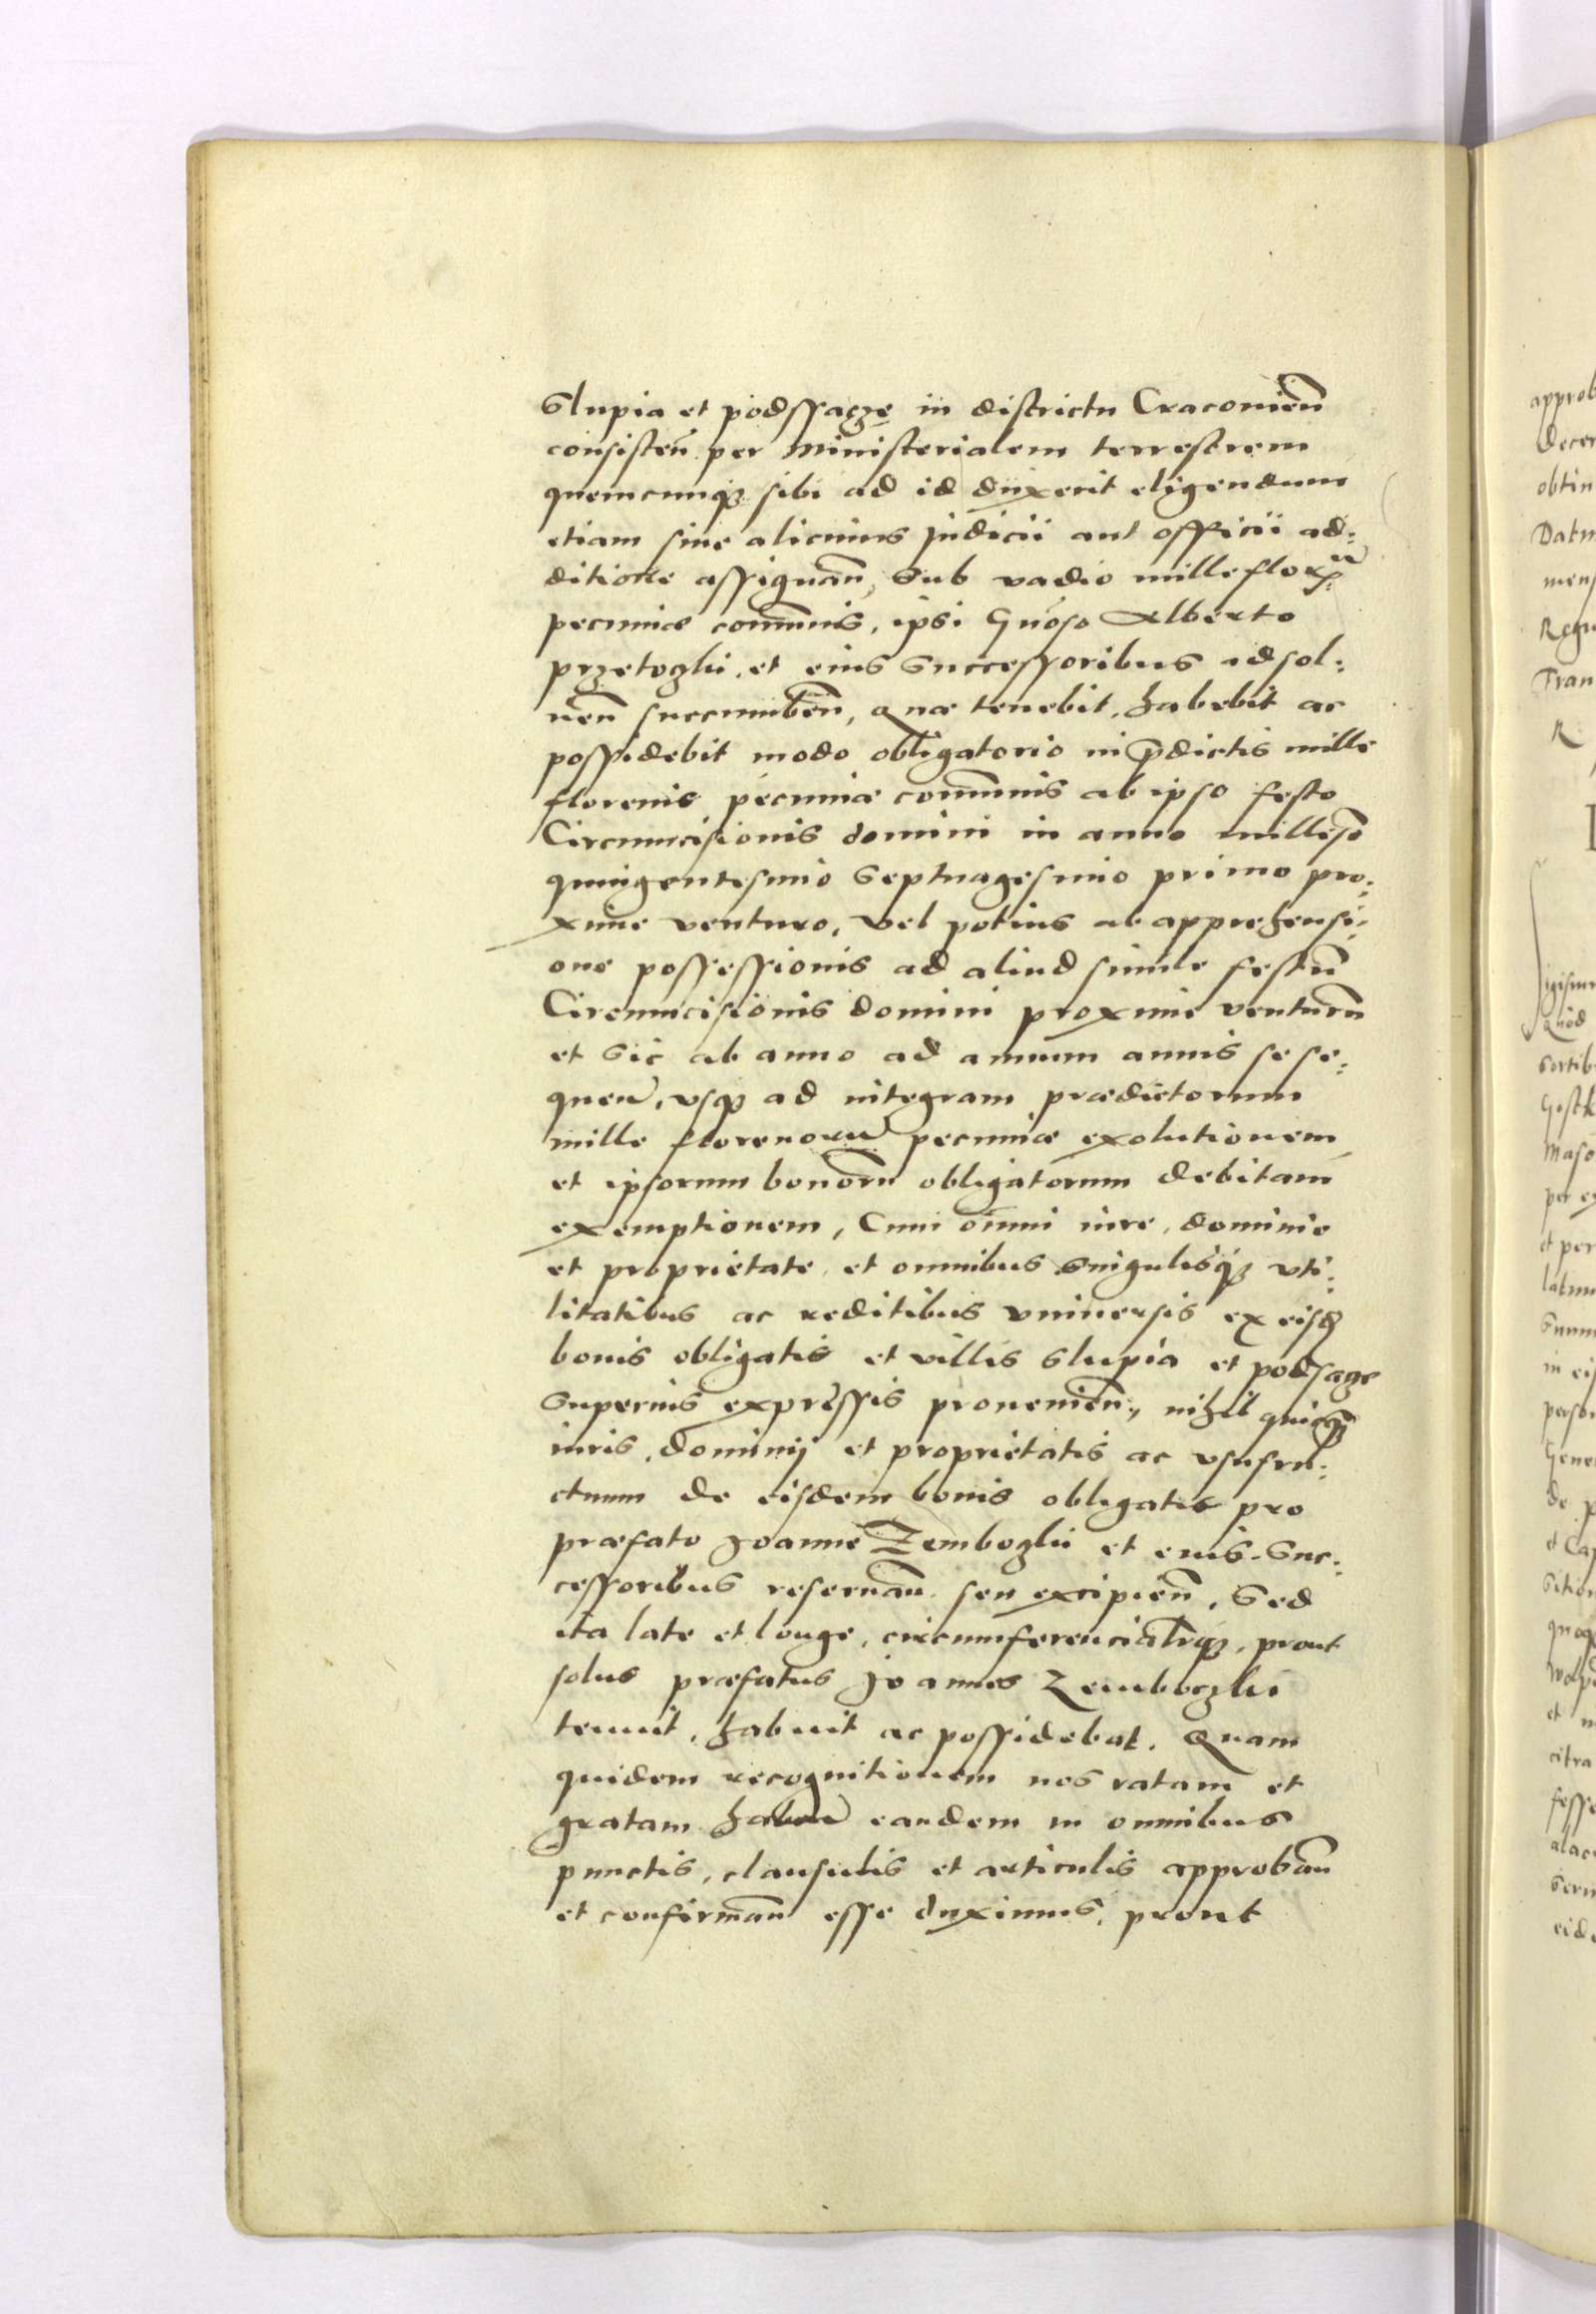 Slupia et podssagze in districtu Cracovien̄
consisten̄ per Ministerialem terrestrem
quemcunqʒ sibi ad id duxerit eligendum
etiam sine alicuius judicii aut officii ad:
ditione assignan̄, Sub vadio mille flor
pecuniæ com̄unis, ipsi Gn̄oso Alberto
przetozki, et eius Successoribus idsol:
uen̄ succumben̄, Quæ tenebit, habebit ac
possidebit modo obligatorio in p̄dictis mille
florenis pecuniæ com̄unis ab ipso festo
Circumcisionis domini in anno millesō
quingentesimo Septuagesimo primo pro:
xime venturo, vel potius ab apprehensi:
one possessionis ad aliud simile festū
Circumcisionis domini proxime venturū
et Sic ab anno ad annum annis se se:
quen̄, vsqʒ ad integram prædictorum
mille florenorū pecuniæ exolutionem
et ipsorum bonorū obligatorum debitam
exemptionem, Cum om̄i iure, dominio
et proprietate, et omnibus Singulisqʒ vti:
litatibus ac reditibus vniuersis ex eisd
bonis obligatis et villis Slupia et podsagze
Superius expressis prouenien̄, nihil quicqʒ
iuris, dominij et proprietatis ac vsufru:
ctuum de eisdem bonis obligatis pro
præfato Joanne Zemboczki et eius Suc:
cessoribus reseruan̄ seu excipien̄, Sed
ita late et longe, circumferencialrqʒ, prout
solus præfatus Joannes Zemboczki
tenuit, habuit ac possidebat. Quam
quidem recognitionem nos ratam et
gratam haben̄ eandem in omnibus
punctis, clausulis et articulis approban̄
et confirman̄ esse duximus, prout